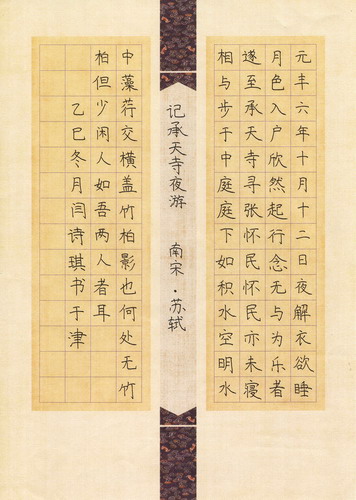 元丰六年十月十二日夜解衣欲睡
月色入户欣然起行念无与为乐者
遂至承天寺寻张怀民怀民亦未寝
相与步于中庭庭下如积水空明水
记承天寺夜游 南宋·苏轼
中藻荇交横盖竹柏影也何处无竹
柏但少闲人如吾两人者耳
乙巳冬月闫诗琪书于津